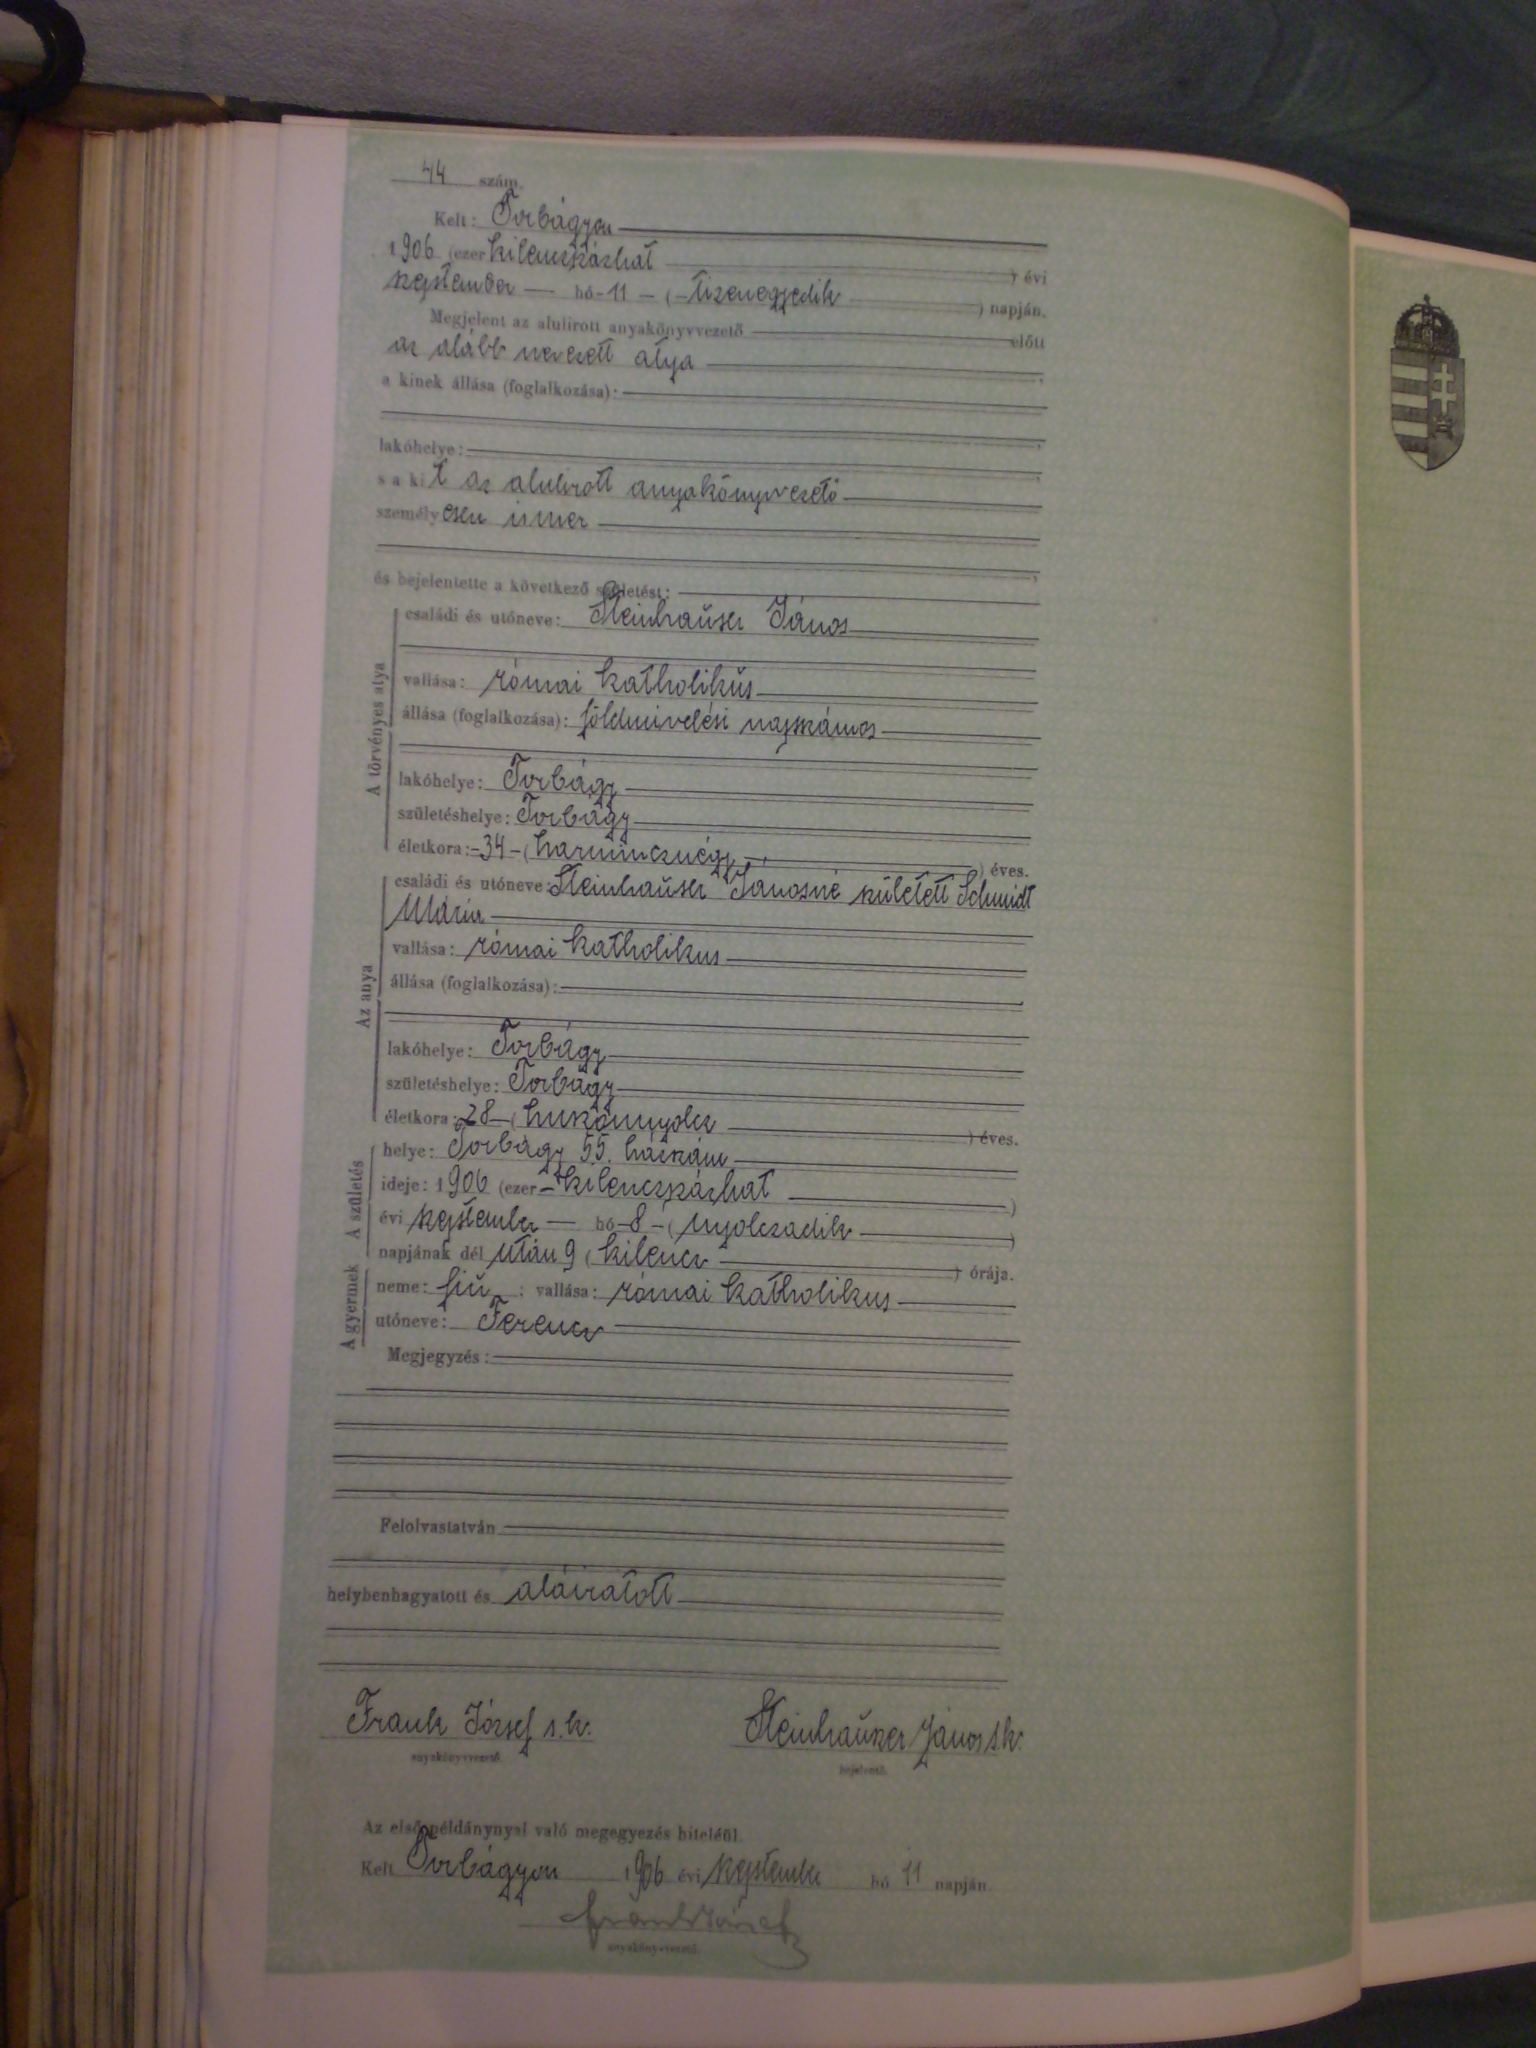 44 szám.
Kelt: Torbágyon
1906 (ezer kilenczszázhat ) évi
szeptember hó - 11 - ( - tizenegyedik ) napján.
Megjelent az alulirott anyakönyvvezető előtt
az alább nevezett atya ,
a kinek állása (foglalkozása):
lakóhelye: ,
s a kit az alulirott anyakönyvvezető
személyesen ismer
,
és bejelentette a következő születést:
A törvényes atya
családi és utóneve: Steinhauser János
vallása: római katholikus
állása (foglalkozása): földmivelési napszámos
lakóhelye: Torbágy
születéshelye: Torbágy
életkora: - 34 - ( harmincznégy ) éves.
Az anya
családi és utóneve: Steinhauser Jánosné született Schmidt
Mária
vallása: római katholikus
állása (foglalkozása):
lakóhelye: Torbágy
születéshelye: Torbágy
életkora: 28 - ( huszonnyolcz ) éves.
A születés
helye: Torbágy 55. házszám
ideje: 1906 (ezer - kilenczszázhat )
évi szeptember hó - 8 - ( nyolczadik )
napjának dél után 9 ( kilencz ) órája.
A gyermek
neme: fiú ; vallása: római katholikus
utóneve: Ferencz
Megjegyzés:
Felolvastatván
helybenhagyatott és aláiratott
Frank József s.k. Steinhauser János s.k.
anyakönyvvezető. bejelentő.
Az első példánynyal való megegyezés hiteléül.
Kelt Torbágyon 1906 évi szeptember hó 11 napján
Frank József
anyakönyvvezető.